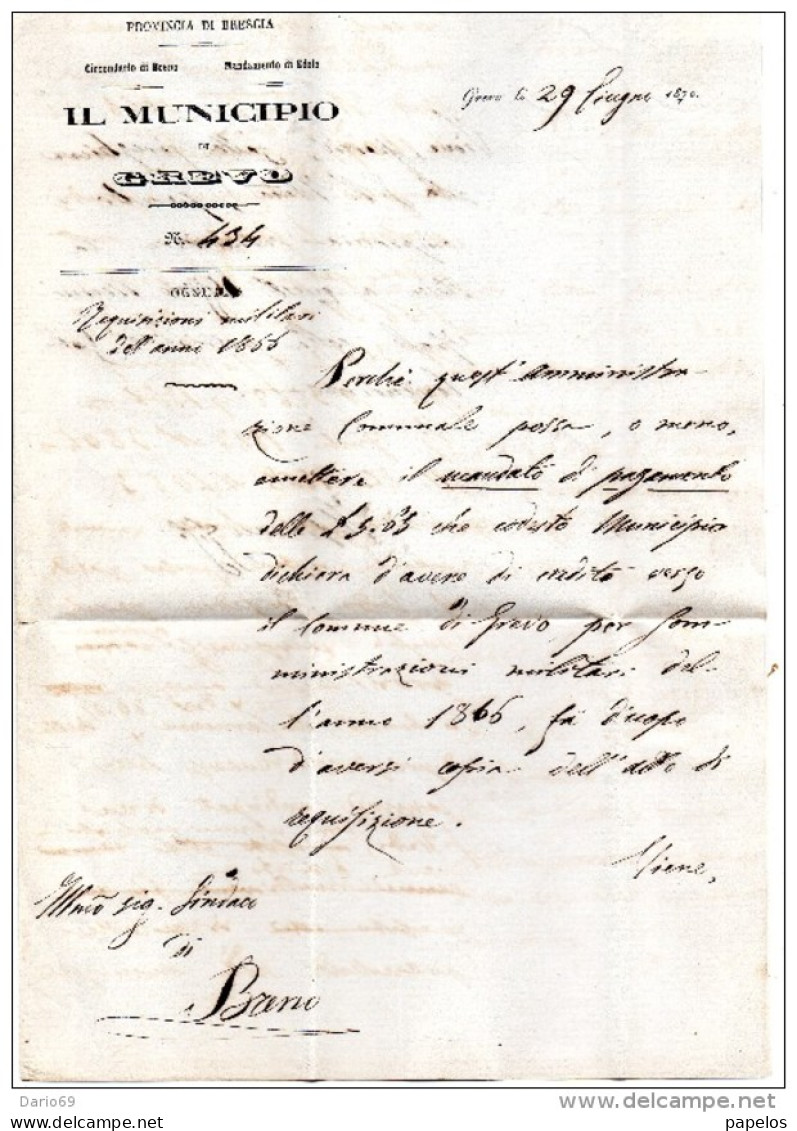 PROVINCIA DI BRESCIA
Circondario di Breno Mandamento di Edolo
IL MUNICIPIO
DI
GREVO
N. 434
Grevo li 29 Giugno 1870.
OGGETTO
Requisizioni militari
dell'anno 1866
Perchè quest'Amministra-
zione Comunale possa, o meno,
emettere il mandato di pagamento
delle £ 5.65 che codesto Municipio
dichiara d'avere di credito verso
il Comune di Grevo per som-
ministrazioni militari del-
l'anno 1866, fa d'uopo
d'aversi copia dell'atto di
requisizione.
Viene,
Illmo sig. Sindaco
di
Breno
Dario69
www.delcampe.net
papelos